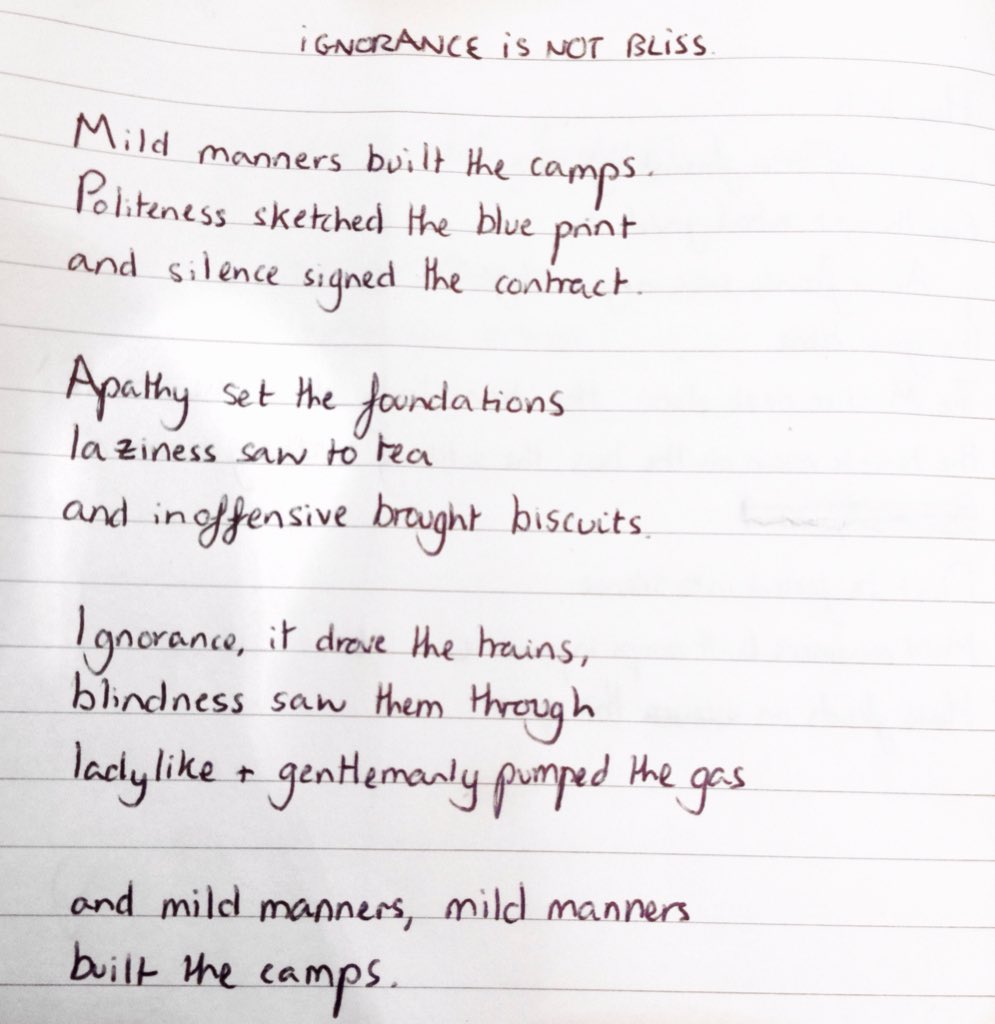 iGNORANCE iS NOT BLiSS.
Mild manners built the camps.
Politeness sketched the blue print
and silence signed the contract.
Apathy set the foundations
laziness saw to tea
and inoffensive brought biscuits.
Ignorance, it drove the trains,
blindness saw them through
ladylike + gentlemanly pumped the gas
and mild manners, mild manners
built the camps.